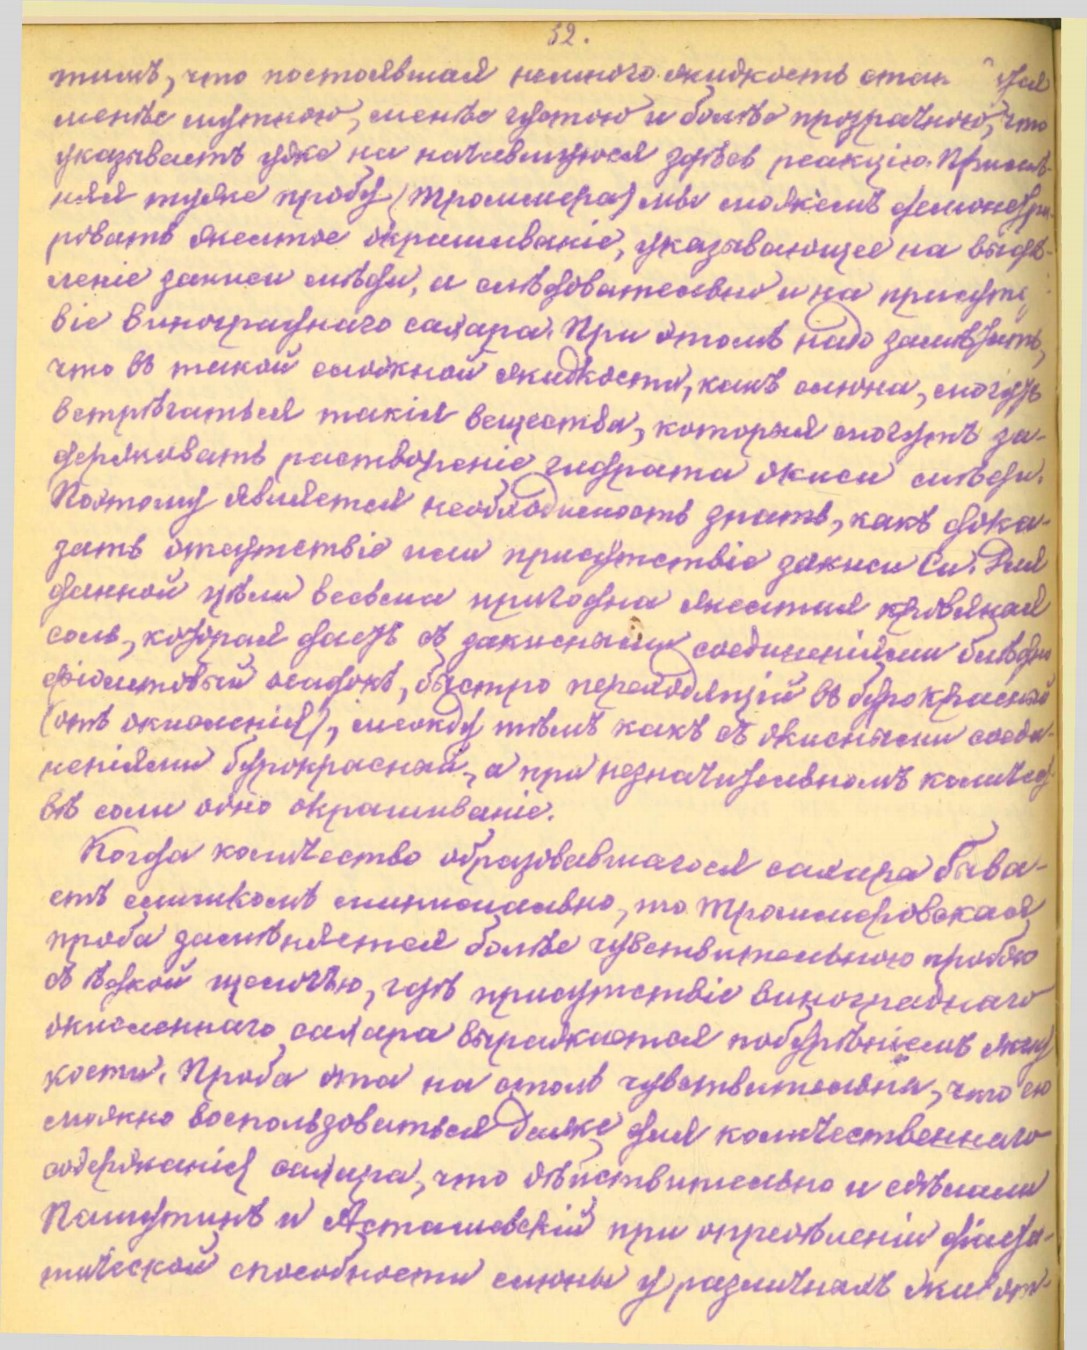 52.
тимъ, что постоявшая немного жидкость стан
менѣе мутною, менѣе густою и болѣе прозрачною, что
указываетъ уже на начавшуюся здѣсь реакцію. Примѣ-
няя туже пробу (Троммера) мы можемъ демонстри-
ровать желтое окрашиваніе, указывающее на выдѣ-
леніе закиси мѣди, и слѣдовательно и на присутс
віе винограднаго сахара. При этомъ надо замѣтить,
что въ такой сложной жидкости, какъ слюна, могутъ
встрѣчаться такія вещества, которыя могутъ за-
держивать раствореніе гидрата окиси мѣди.
Поэтому является необходимость знать, какъ дока-
зать отсутствіе или присутствіе закиси Cu. Для
данной цѣли весьма пригодна желтая кровяная
соль, которая даетъ съ закисными соединеніями блѣдно
фіолетовый осадокъ, быстро переходящій въ бурокрасный
(отъ окисленія), между тѣмъ какъ съ окисными соеди-
неніями бурокрасный, а при незначительномъ количест
вѣ соли одно окрашиваніе.
Когда количество образовавшагося сахара быва-
етъ слишкомъ минимально, то Троммеровская
проба замѣняется болѣе чувствительною пробою
съ ѣдкой щелочью, гдѣ присутствіе винограднаго
окисленнаго сахара выражается побурѣніемъ жид
кости. Проба эта на столь чувствительна, что ею
можно воспользоваться даже для количественнаго
содержанія сахара, что дѣйствительно и сдѣлали
Пашутинъ и Асташевскій при опредѣленіи діаста-
тической способности слюны у различныхъ живот-